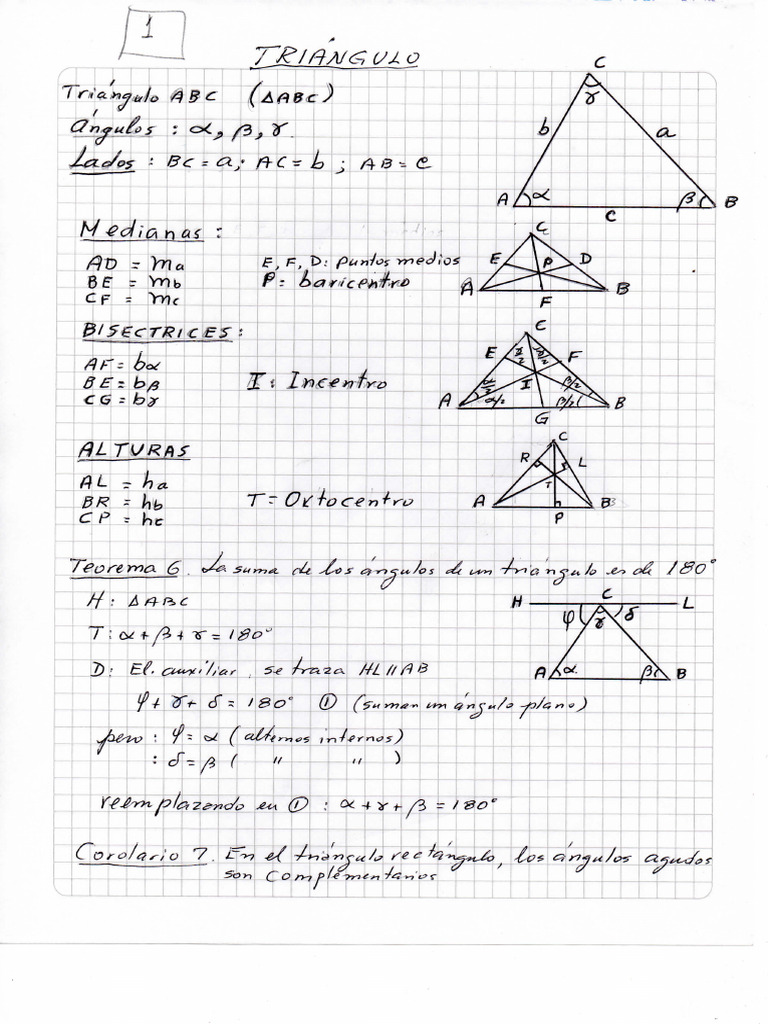 1
TRIÁNGULO
Triángulo ABC (△ABC)
Ángulos : α, β, γ.
Lados : BC = a; AC = b ; AB = c
C
γ
b
a
A
α
β
B
c
Medianas :
AD = ma
BE = mb
CF = mc
E, F, D: Puntos medios
P: baricentro
C
E
P
D
A
B
F
BISECTRICES :
AF = bα
BE = bβ
CG = bγ
I : Incentro
C
E
γ/2
γ/2
F
I
α/2
β/2
A
α/2
β/2
B
G
ALTURAS
AL = ha
BR = hb
CP = hc
T = Ortocentro
C
R
L
T
A
B
P
Teorema 6. La suma de los ángulos de un triángulo es de 180°
H : △ABC
T : α + β + γ = 180°
D : El. auxiliar, se traza HL∥AB
φ + γ + δ = 180° ① (suman un ángulo plano)
pero : φ = α (alternos internos)
: δ = β ( " " )
reemplazando en ① : α + γ + β = 180°
H
C
L
φ
γ
δ
A
α
β
B
Corolario 7. En el triángulo rectángulo, los ángulos agudos
son complementarios